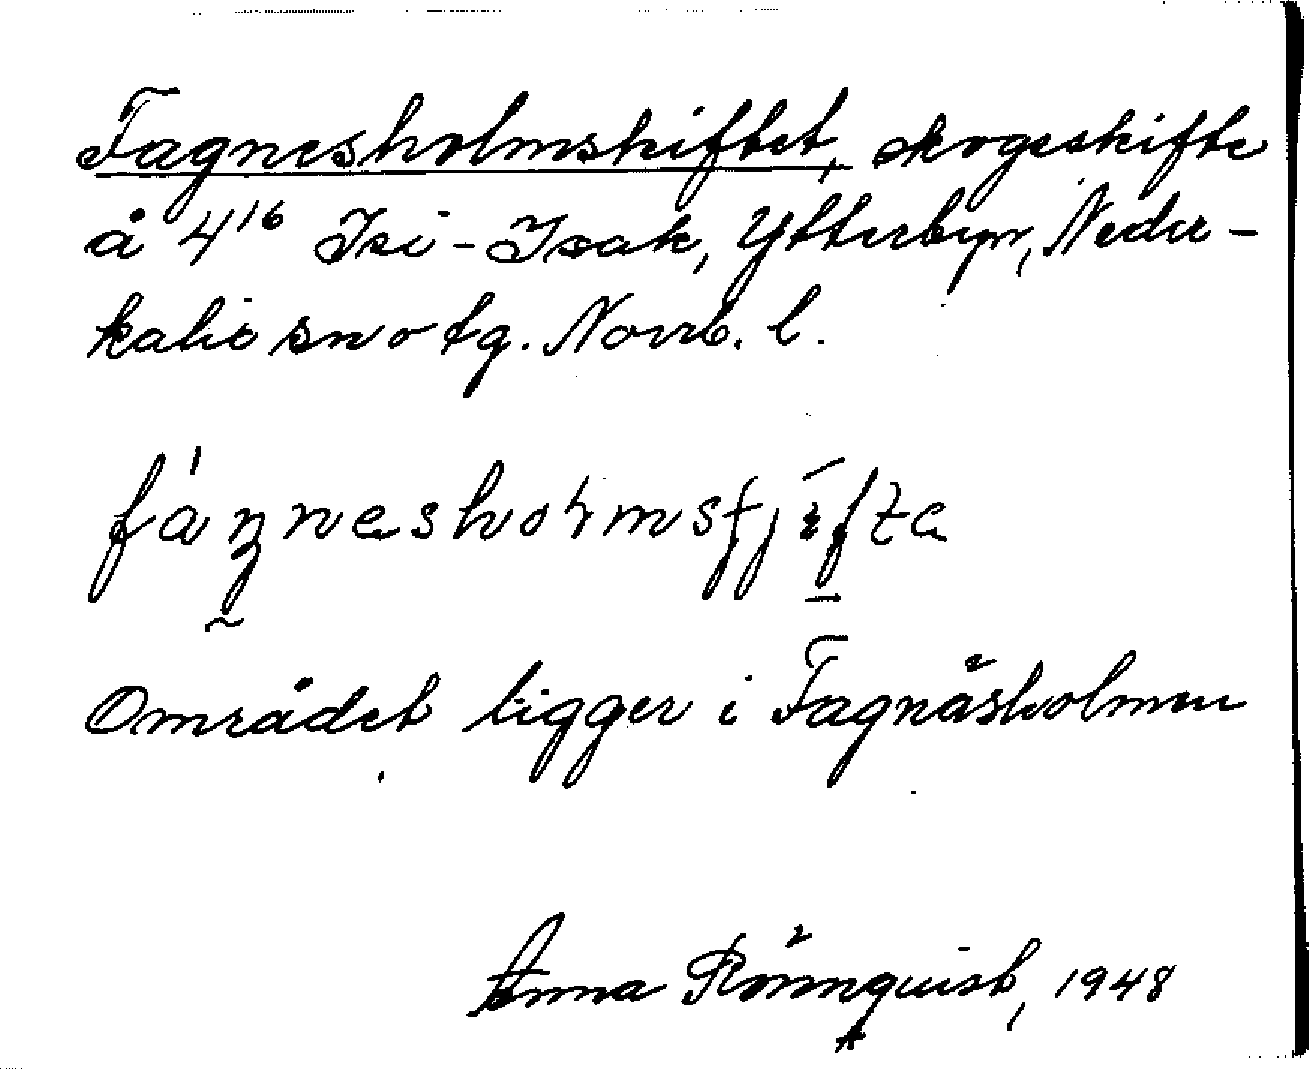 Fagnesholmskiftet, skogsskifte
å 4¹⁶ Isi-Isak, Ytterbyn, Neder-
kalix sn o tg. Norrb. l.
Området ligger i Fagnäsholmen
Anna Rönnquist, 1948